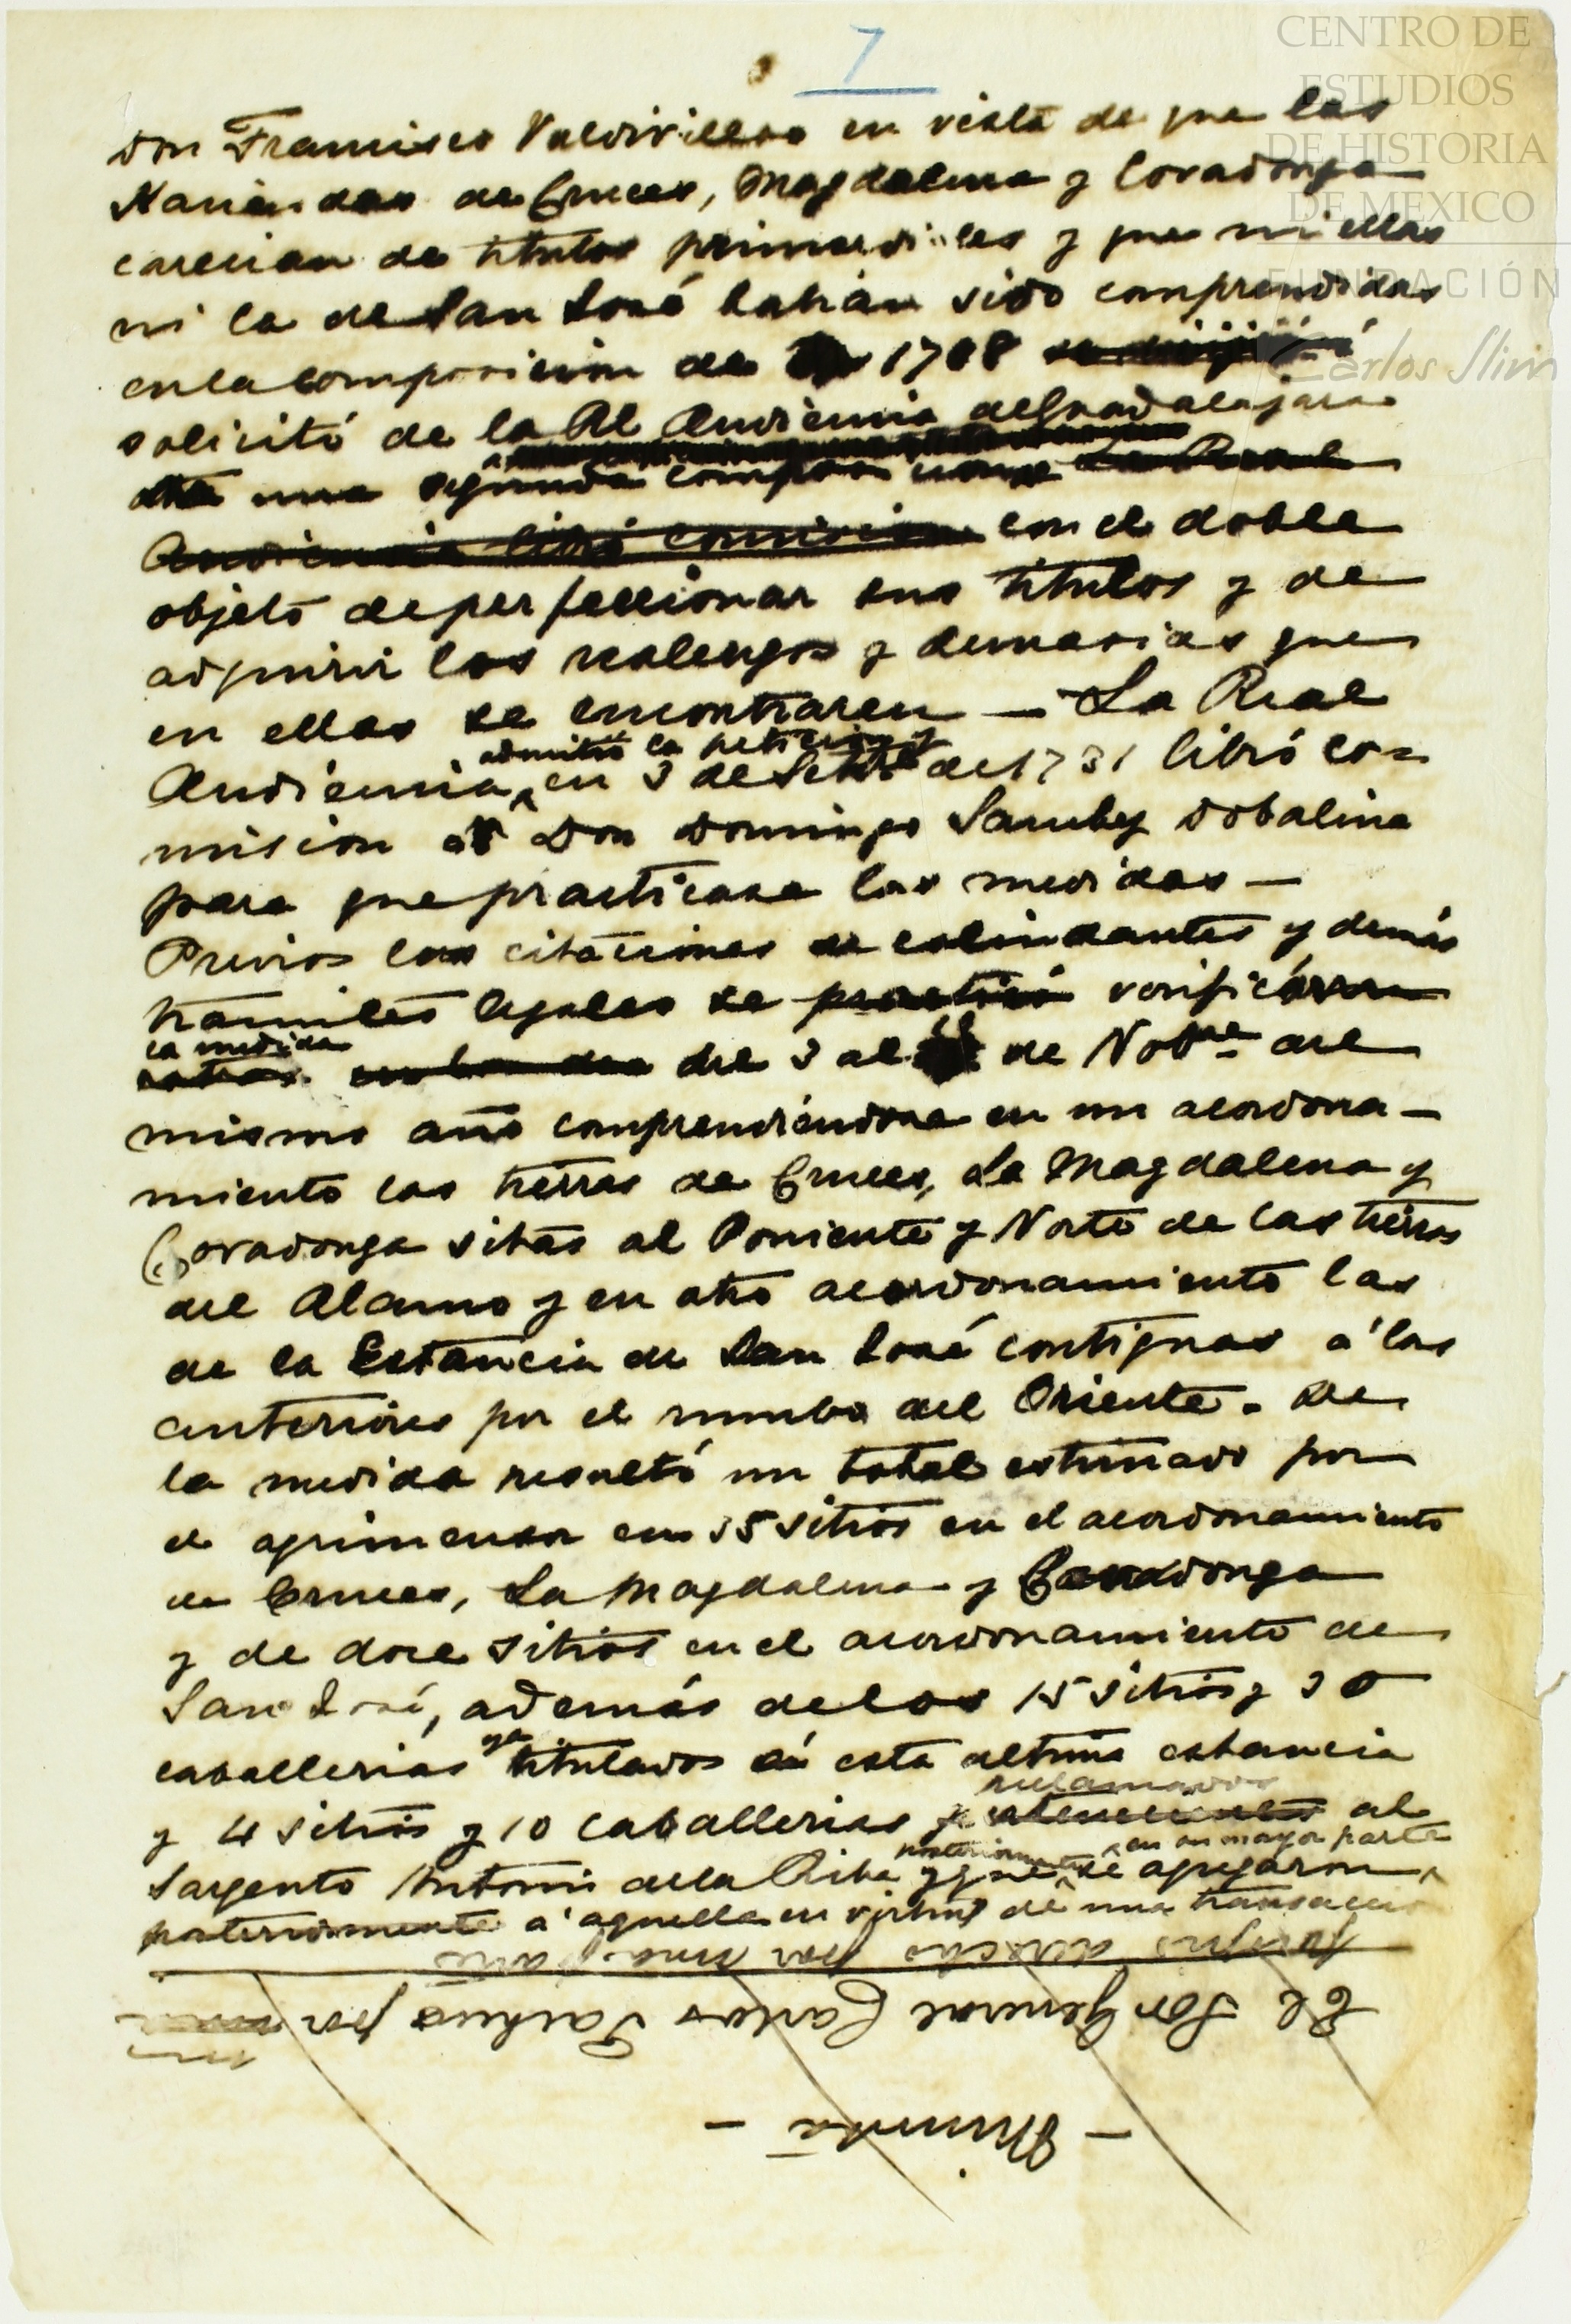 7
CENTRO DE
ESTUDIOS
DE HISTORIA
DE MEXICO
FUNDACIÓN
Carlos Slim
Don Francisco Valdivielso en vista de que las
Haciendas de Cruces, Magdalena y Covadonga
carecian de titulos primordiales y que ni ellas
ni la de San José habian sido comprendidas
en la composicion de 1708
solicitó de la Rl Audiencia de Guadalajara
una segunda composicion la Real
Audiencia libró comision con el doble
objeto de perfeccionar sus titulos y de
adquirir los realengos y demasias que
en ellas se encontraren — La Real
admitió la peticion y
Audiencia en 3 de Setbre de 1731 libró co-
mision á Don Domingo Sanchez Dobalina
para que practicase las medidas —
Previos las citaciones de colindantes y demás
tramites legales se practicó verificaron
la medida
del 3 al de Nobre del
mismo año comprendiéndose en un acordona-
miento las tierras de Cruces, La Magdalena y
Covadonga sitas al Poniente y Norte de las tierras
del Alamo y en otro acordonamiento las
de la Estancia de San José contiguas á las
anteriores por el rumbo del Oriente. De
la medida resultó un total estimado por
el agrimensor en 35 sitios en el acordonamiento
de Cruces, La Magdalena y Covadonga
y de doce sitios en el acordonamiento de
San José, además de los 15 sitios y 30
caballerias ya titulados á esta ultima estancia
reclamados
y 4 sitios y 10 caballerias pertenecientes al
posteriormente en su mayor parte
Sargento Antonio de la Riba y que se agregaron
posteriormente á aquella en virtud de una transaccion
propios derechos por una parte
El Sor General Carlos Pacheco por
— Minuta —